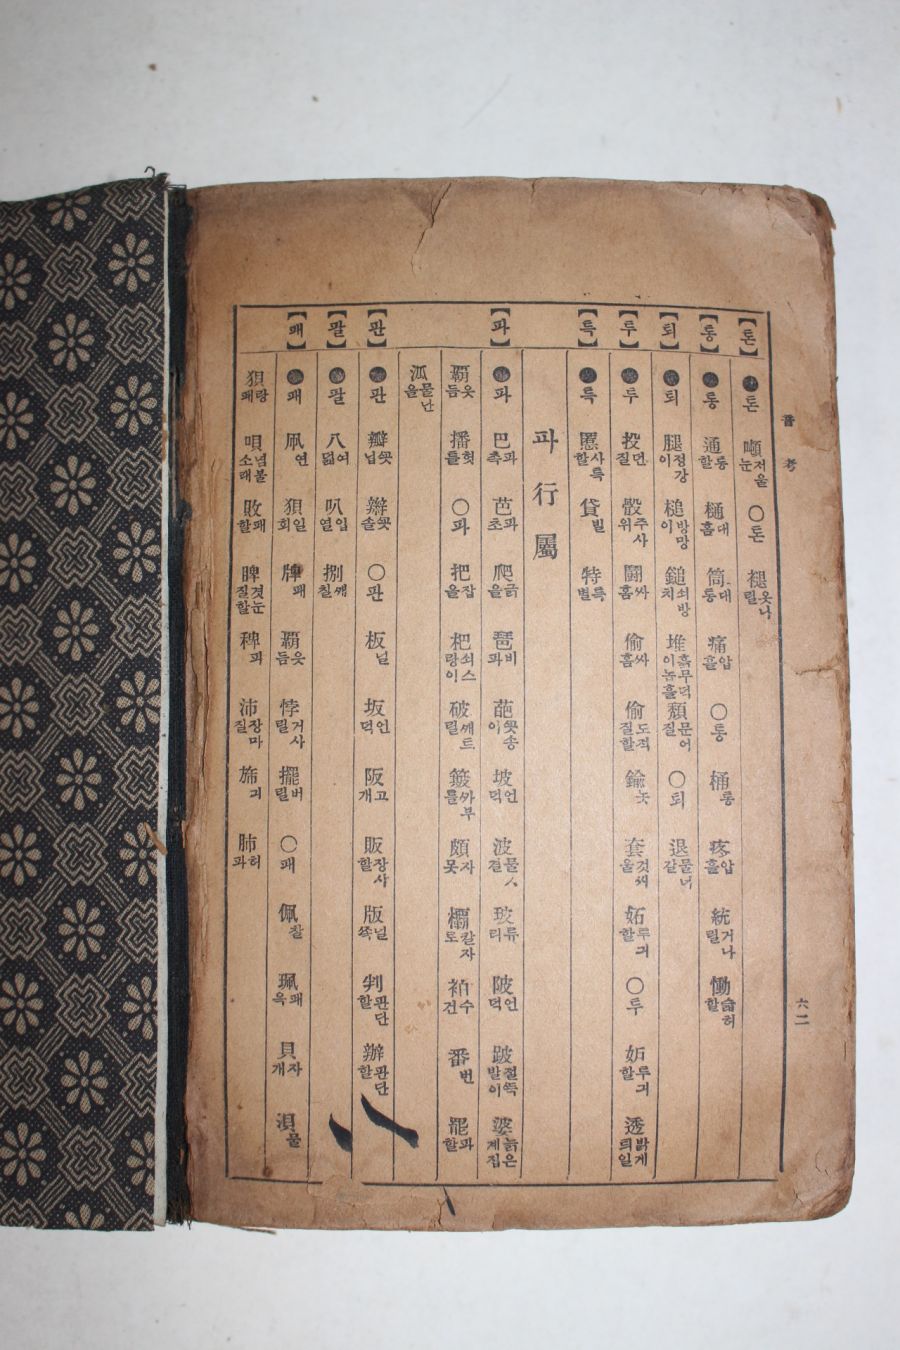 音考
六二
【톤】 ●톤 噸 저울눈 ○톤 褪 옷나릴
【통】 ●통 通 통할 樋 대홈 筒 대통 痛 압흘 ○통 桶 통 疼 압흘 統 거나릴 慟
【퇴】 ●퇴 腿 정강이 槌 방망이 鎚 쇠방치 堆 頹 문어질 ○퇴 退 물너갈
【투】 ●투 投 던질 骰 주사위 鬪 싸홈 偸 싸홈 偷 도적질할 鍮 놋 套 것씨울 妬 투긔할 ○투 妒 투긔할 透 밝게 띄일
【특】 ●특 慝 사특할 貸 빌 特 특별
파行屬
【파】 ●파 巴 파촉 芭 파초 爬 긁을 琶 비파 葩 꼿송이 坡 언덕 波 물ㅅ결 玻 류리 陂 언덕 跛 절뚝발이 婆 늙은계집
覇 웃듬 播 헛틀 ○파 把 잡을 杷 쇠스랑이 破 깨트릴 簸 까부를 頗 자못 欛 칼자토 袙 수건 番 번 罷 파할
派 물난을
【판】 ●판 瓣 꼿닙 辦 꼿술 ○판 板 널 坂 언덕 阪 고개 販 장사할 版 널쪽 判 판단할 辦 판단할
【팔】 ●팔 八 여덟 叭 입열 捌 깨칠
【패】 ●패 凧 연 狽 일회 牌 패 覇 웃듬 悖 거사릴 擺 버릴 ○패 佩 찰 珮 패옥 貝 자개 浿 물
狽 랑패 唄 념불소래 敗 패할 睥 것눈질할 稗 파 沛 장마질 旆 긔 肺 허파